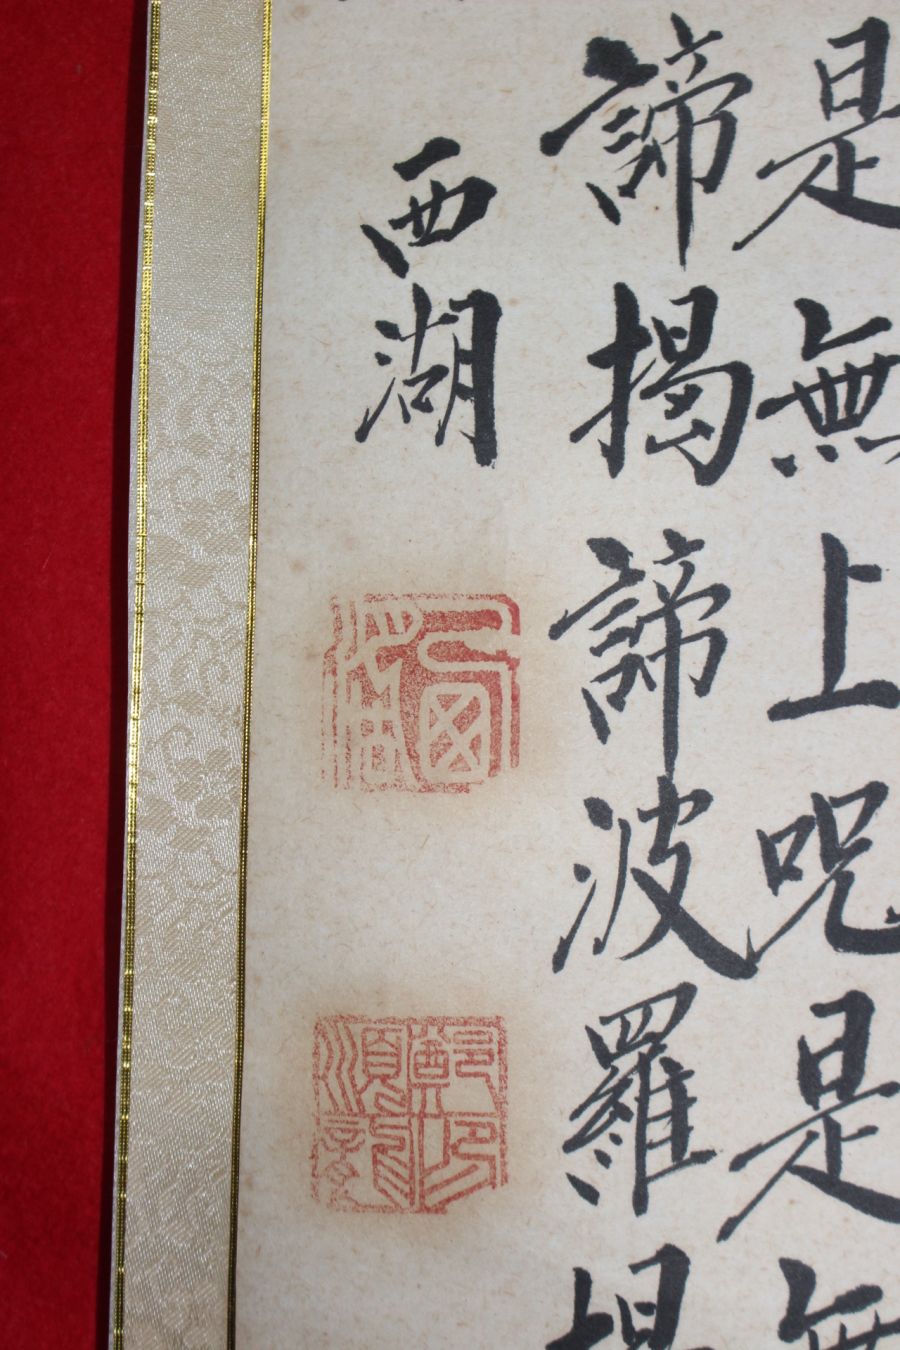 是無上咒是無
諦揭諦波羅揭
西湖